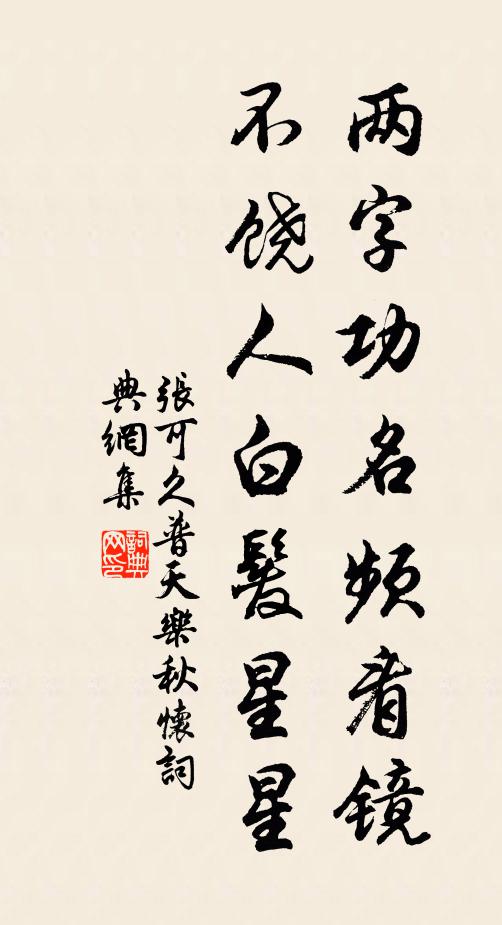 两字功名频看镜
不饶人白髮星星
張可久普天樂秋懷詞
典網集
詞典
网印